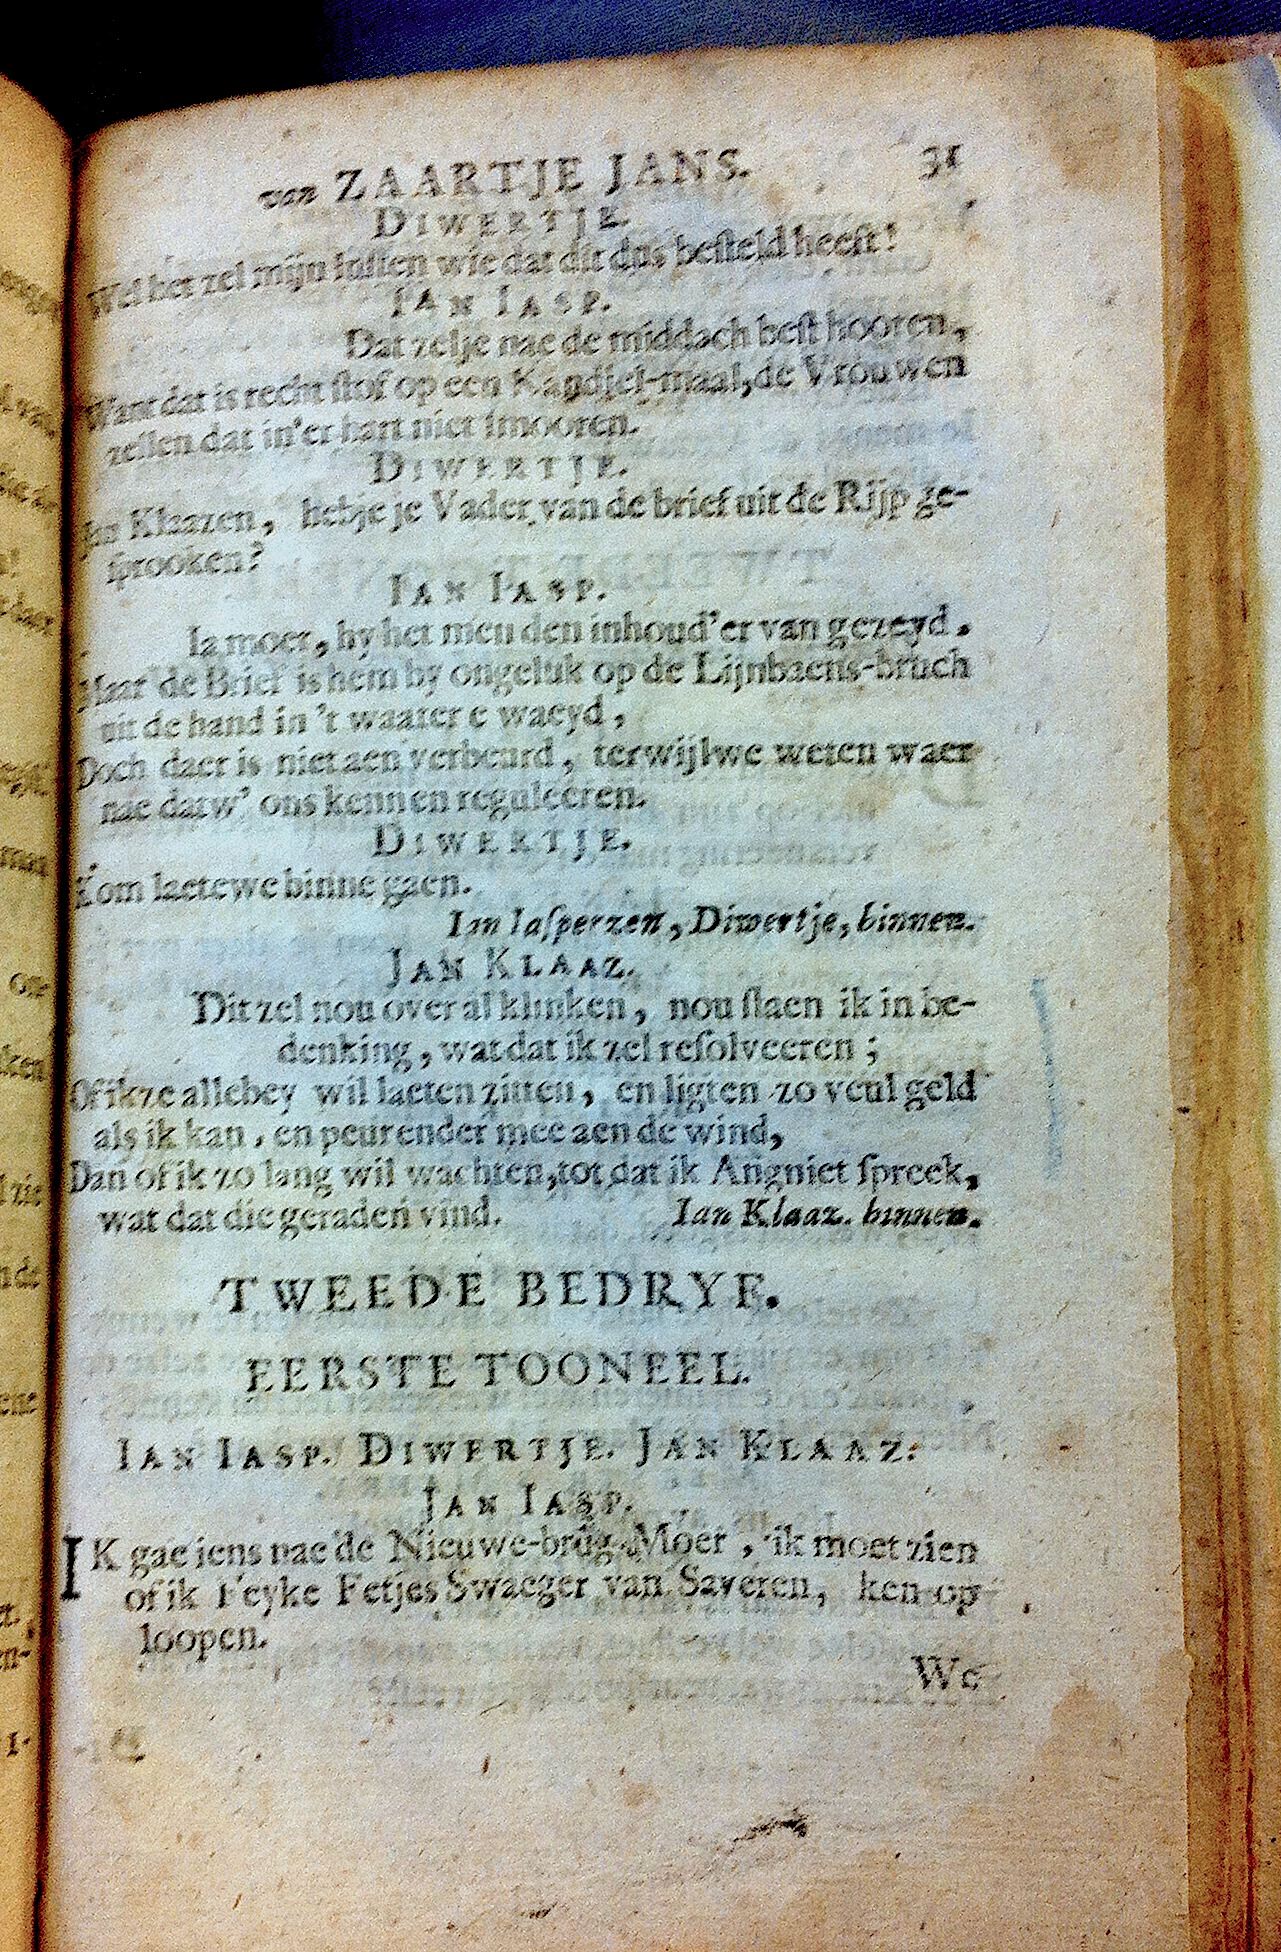 van ZAARTJE JANS. 31
DIWERTJE.
Wel het zel mijn lusten wie dat dit dus besteld heeft!
IAN IASP.
Dat zelje nae de middach best hooren,
Want dat is recht stof op een Kandiel-maal, de Vrouwen
zellen dat in'er hart niet smooren.
DIWERTJE.
Jan Klaazen, hebje je Vader van de brief uit de Rijp ge-
sprooken?
IAN IASP.
Ia moer, hy het men den inhoud'er van gezeyd.
Maar de Brief is hem by ongeluk op de Lijnbaens-bruch
uit de hand in 't waater e waeyd,
Doch daer is niet aen verbeurd, terwijlwe weten waer
nae datw' ons kennen reguleeren.
DIWERTJE.
Kom laetewe binne gaen.
Ian Iasperzen, Diwertje, binnen.
JAN KLAAZ.
Dit zel nou over al klinken, nou staen ik in be-
denking, wat dat ik zel resolveeren;
Of ikze allebey wil laeten zitten, en ligten zo veul geld
als ik kan, en peurender mee aen de wind,
Dan of ik zo lang wil wachten, tot dat ik Angniet spreek,
wat dat die geraden vind. Ian Klaaz. binnen.
TWEEDE BEDRYF.
EERSTE TOONEEL.
IAN IASP. DIWERTJE. JAN KLAAZ.
JAN IASP.
IK gae iens nae de Nieuwe-brug Moer, ik moet zien
of ik Feyke Fetjes Swaeger van Saveren, ken op
loopen.
We